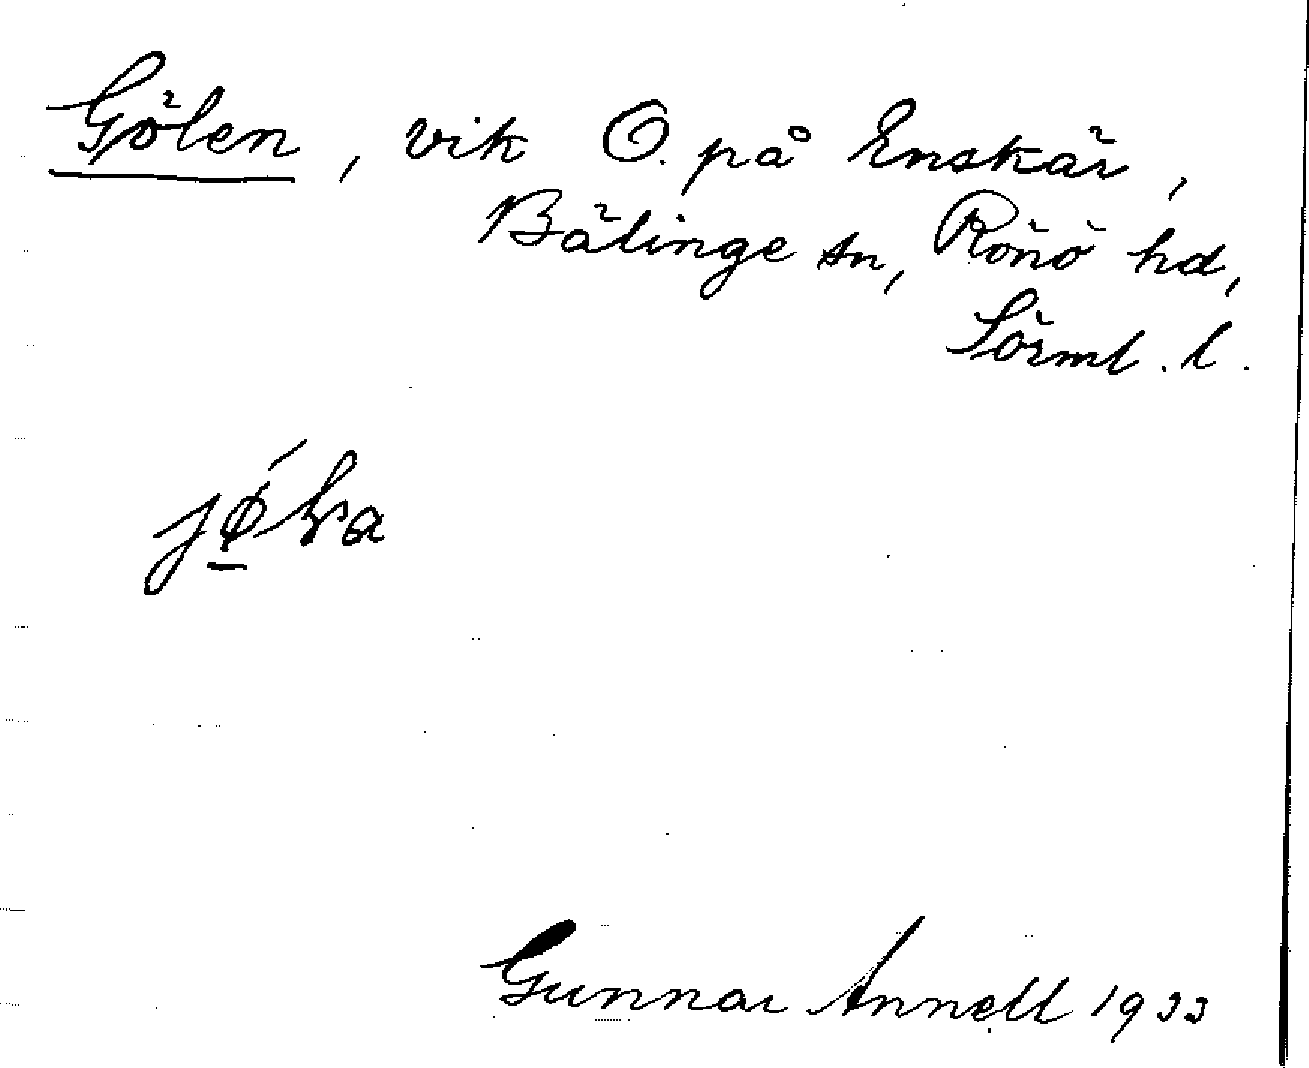 Gölen, vik O. på Enskär,
Bälinge sn, Rönö hd,
Sörml. l.
Gunnar Annell 1933